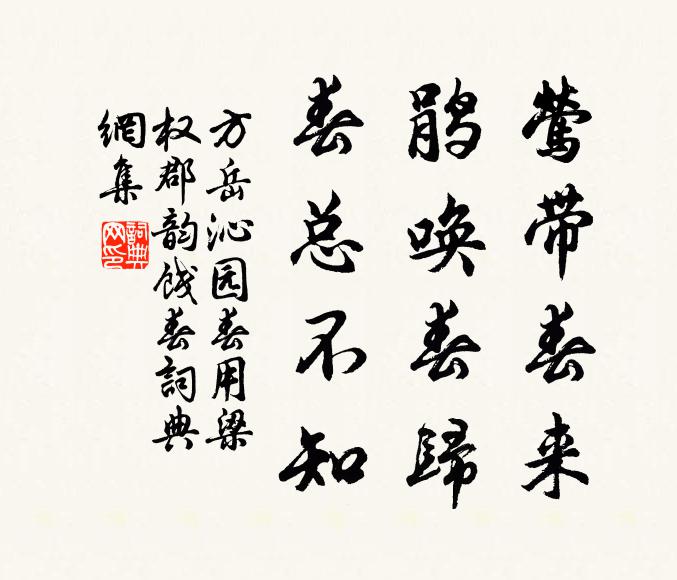 莺带春来
鹃唤春歸
春总不知
方岳沁园春用梁
权郡韵饯春詞典
網集
詞典
网印